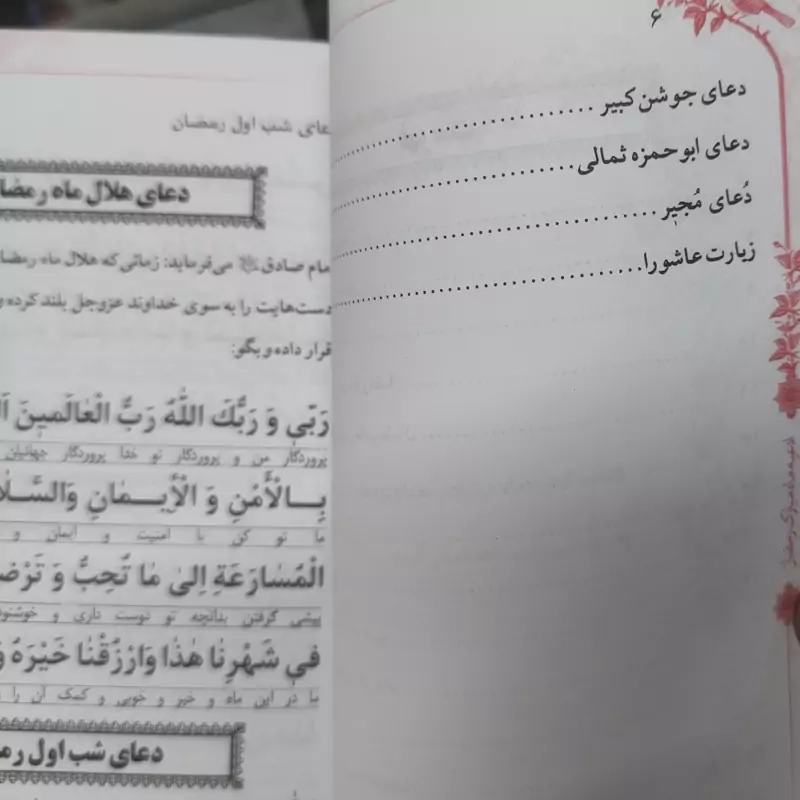 ۶
دعای جوشن کبیر
دعای ابوحمزه ثمالی
دُعای مُجیر
زیارت عاشورا
ادعیه ماه مبارک رمضان
دعای شب اول رمضان
دعای هلال ماه رمضا
امام صادق می‌فرماید: زمانی که هلال ماه رمضا
دست‌هایت را به سوی خداوند عزوجل بلند کرده و
قرار داده و بگو:
رَبّی وَ رَبُّکَ اللّٰهُ رَبُّ الْعٰالَمینَ
پروردگار من و پروردگار تو خدا پروردگار جهانیان
بِالْأَمْنِ وَ الْأیمٰانِ وَالسَّلا
ما تو کن با امنیت و ایمان و
الْمُسٰارَعَةِ اِلیٰ مٰا تُحِبُّ وَ تَرْض
پیشی گرفتن بدانچه تو دوست داری و خوشنود
فی شَهْرِنٰا هٰذٰا وَارْزُقْنٰا خَیْرَهُ وَ
ما در این ماه و خیر و خوبی و کمک آن را
دعای شب اول رم